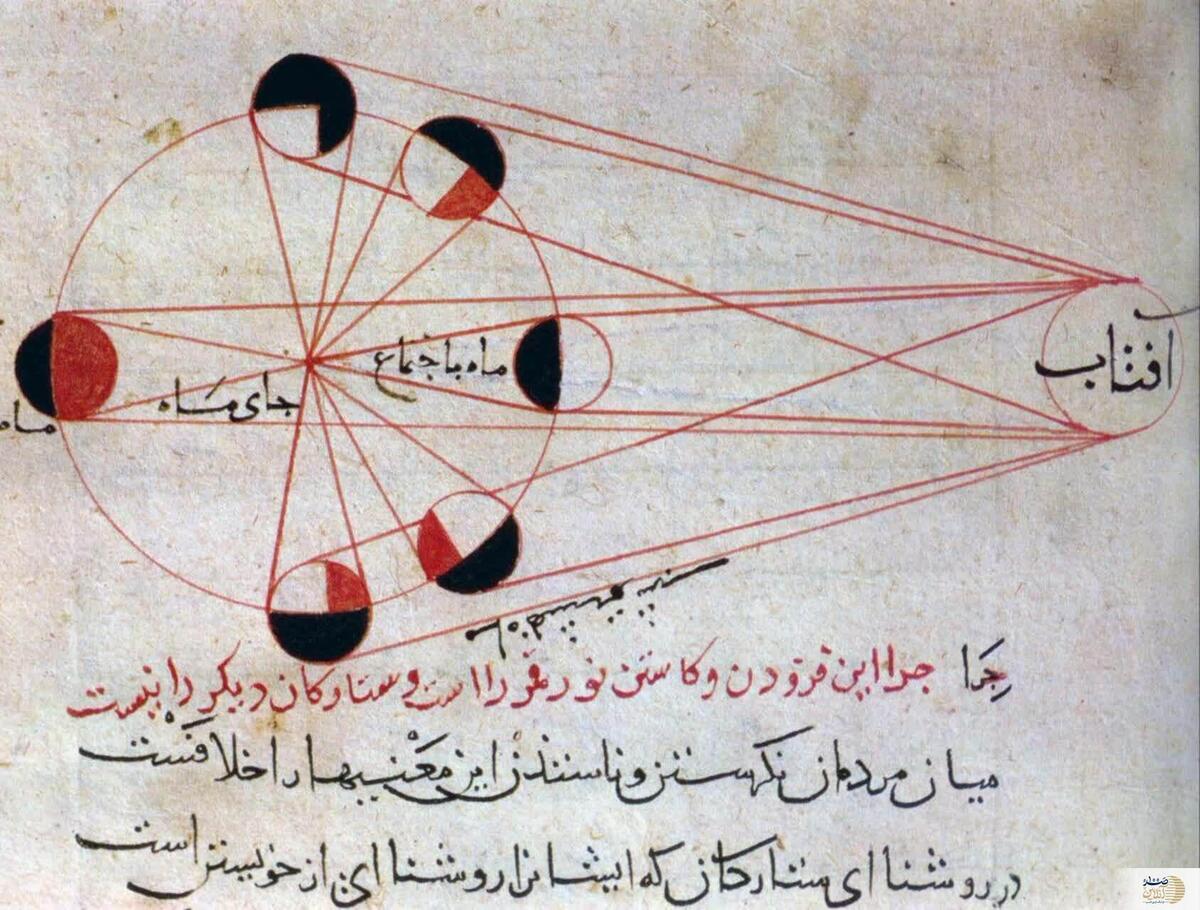 افتاب
ماه باجتماع
جای ماه
ماه
جرا جرا این فزودن و کاستن نور قمر را است و ستارکان دیکر را نیست
میان مردمان نکرستن این معنیها را اختلافست
در روشنا ای ستارکان که ایشانرا روشنا ای از خویستن است